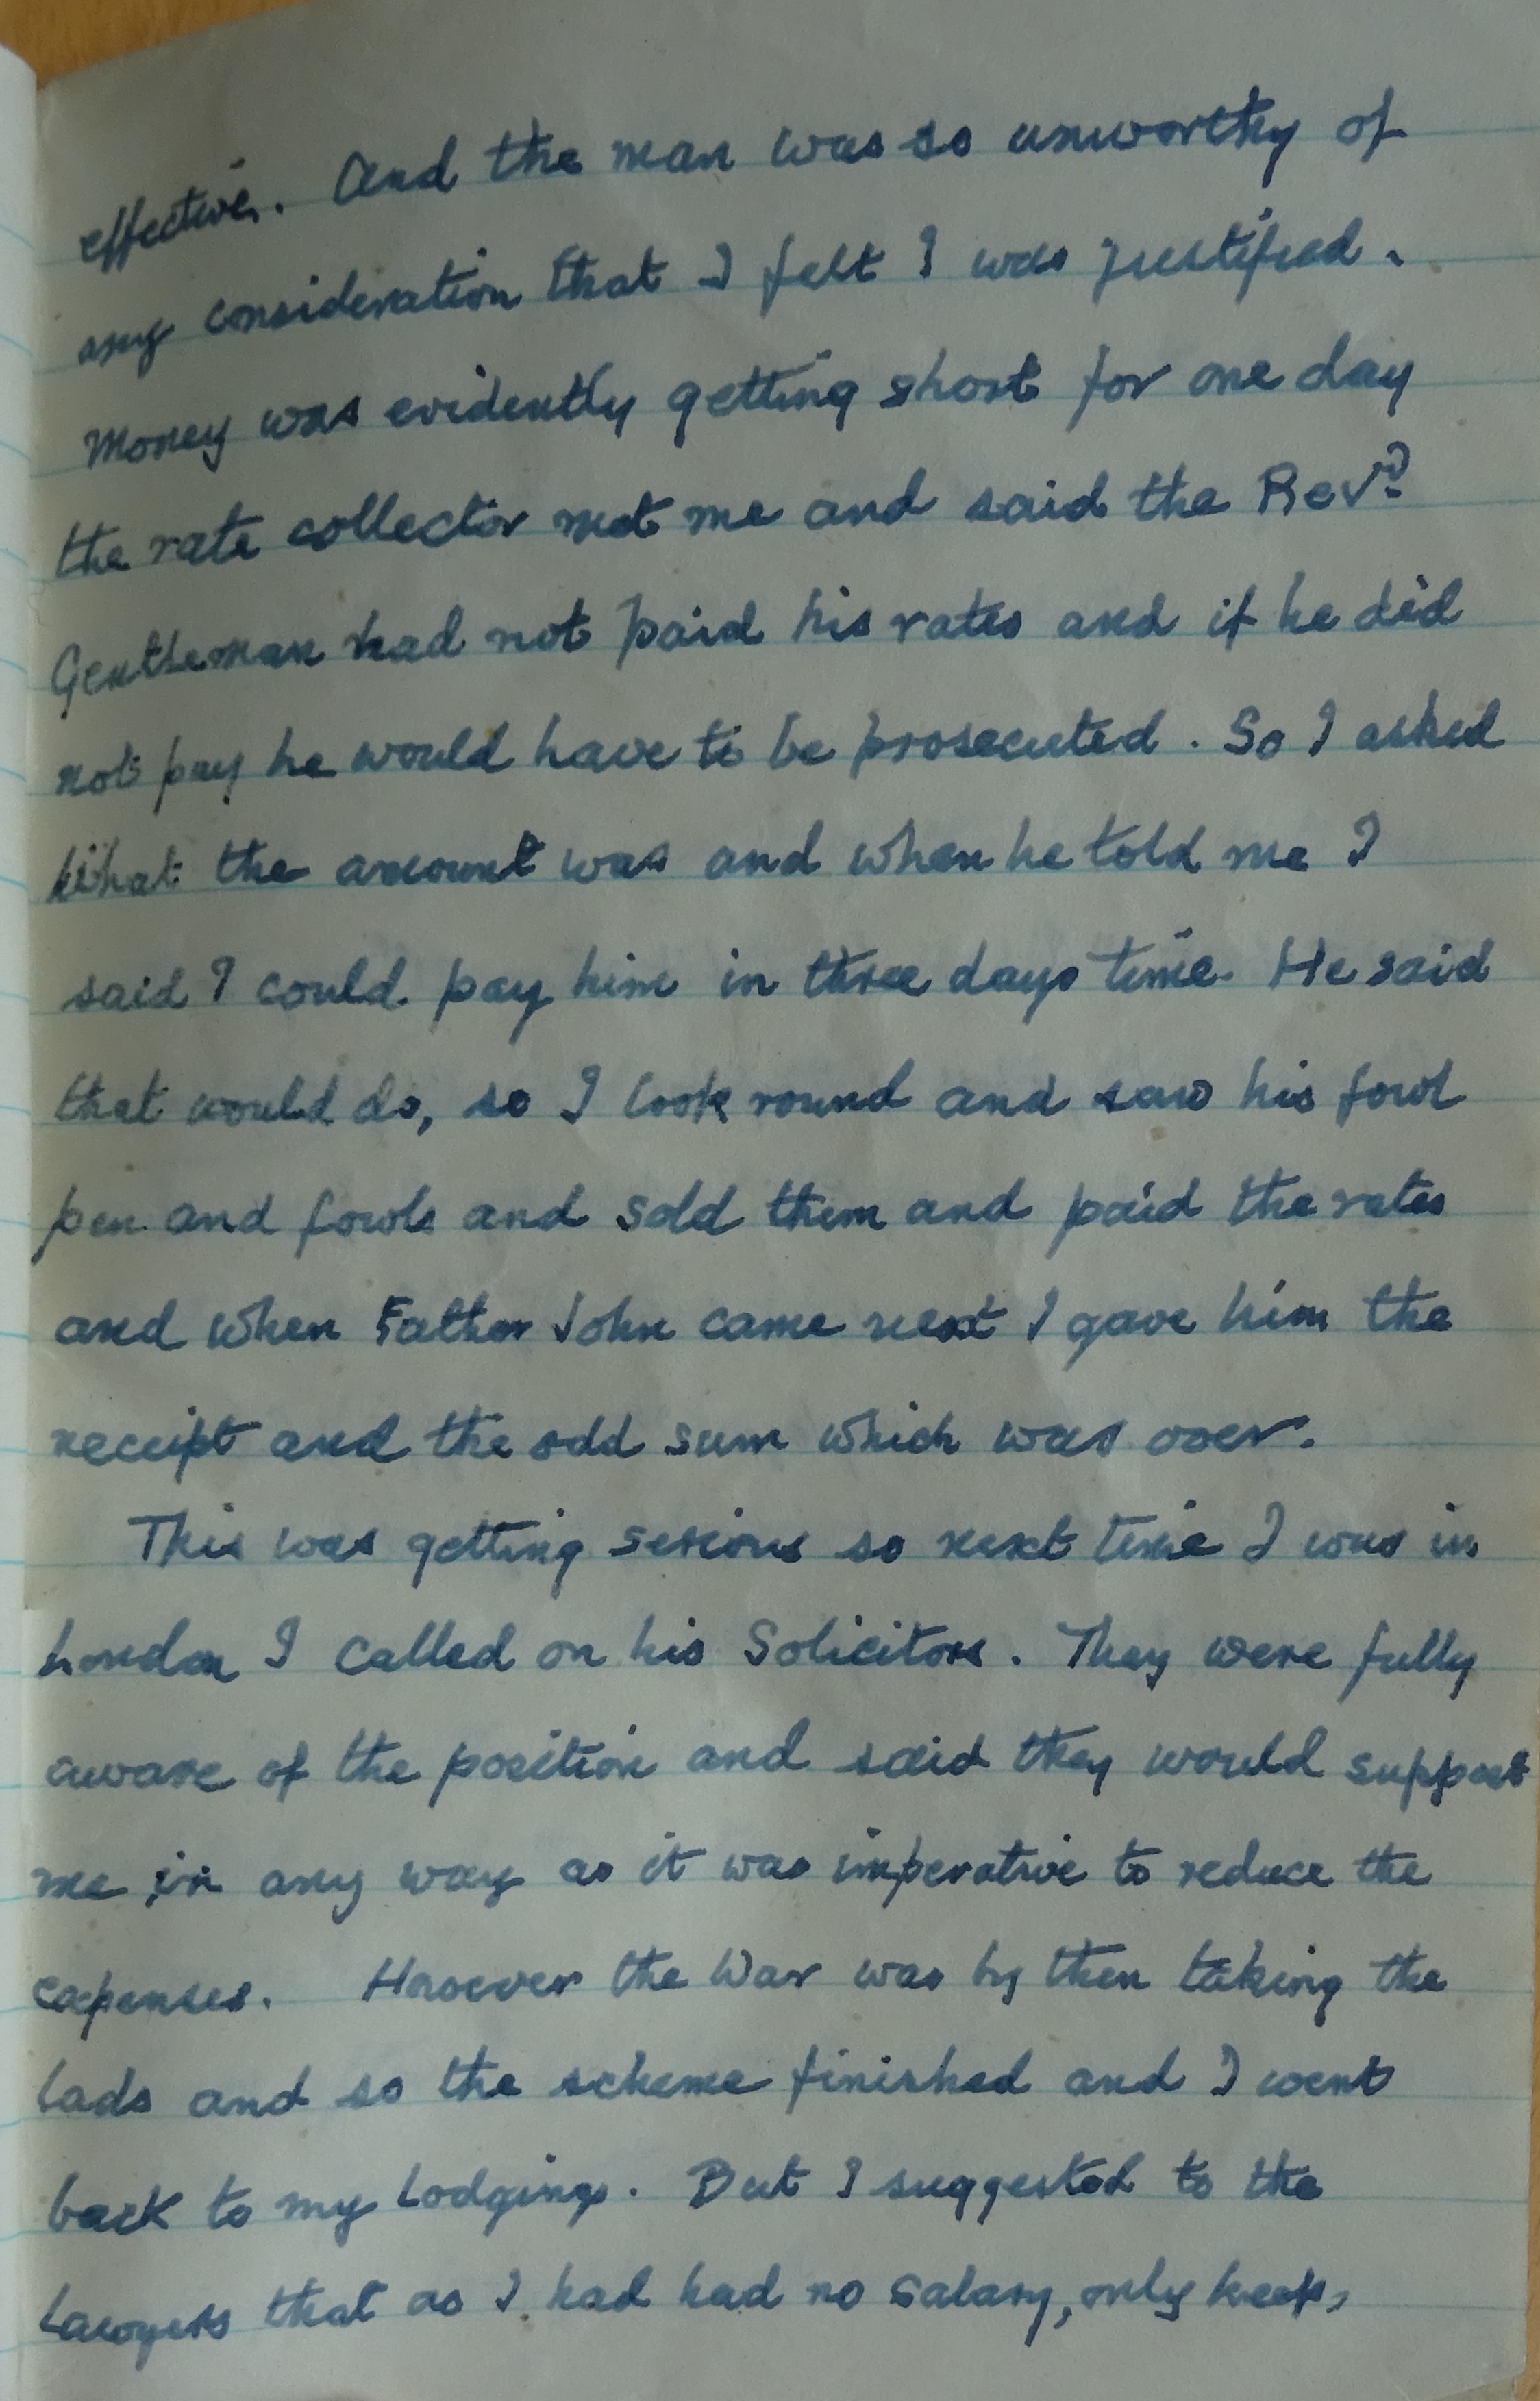 effective. And the man was so unworthy of
any consideration that I felt I was justified.
Money was evidently getting short for one day
the rate collector met me and said the Revd.
Gentleman had not paid his rates and if he did
not pay he would have to be prosecuted. So I asked
what the amount was and when he told me I
said I could pay him in three days time. He said
that would do, so I look round and saw his fowl
pen and fowls and sold them and paid the rates
and when Father John came next I gave him the
receipt and the odd sum which was over.
This was getting serious so next time I was in
London I called on his Solicitors. They were fully
aware of the position and said they would support
me in any way as it was imperative to reduce the
expenses. However the War was by then taking the
lads and so the scheme finished and I went
back to my Lodgings. But I suggested to the
Lawyers that as I had had no salary, only keep,